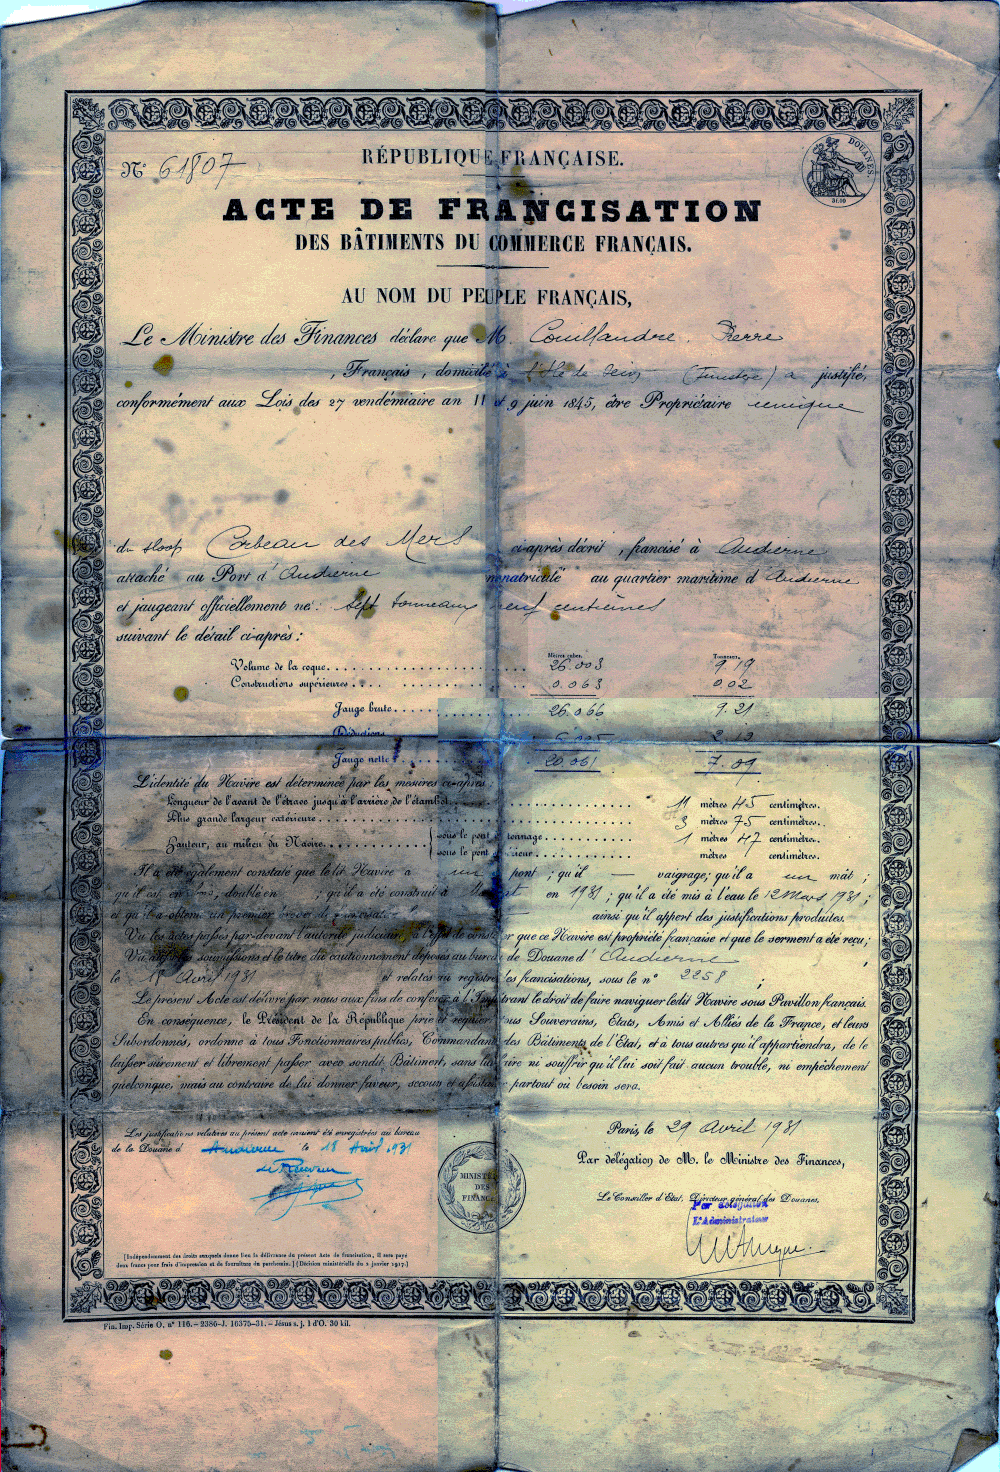 N° 61807
RÉPUBLIQUE FRANÇAISE.
DOUANES.
ACTE DE FRANCISATION
DES BÂTIMENTS DU COMMERCE FRANÇAIS.
AU NOM DU PEUPLE FRANÇAIS,
Le Ministre des Finances déclare que M. Couillandre. Pierre
, Français, domicilié à l'Ile de Sein (Finistère) a justifié,
conformément aux Lois des 27 vendémiaire an II et 9 juin 1845, être Propriétaire unique
du sloop Corbeau des Mers ci-après décrit, francisé à Audierne
attaché au Port d'Audierne immatriculé au quartier maritime d'Audierne
et jaugeant officiellement net: sept tonneaux neuf centièmes
suivant le détail ci-après:
Mètres cubes. Tonneaux.
Volume de la coque 26.003 9.19
Constructions supérieures 0.063 0.02
Jauge brute 26.066 9.21
Déductions 2.12
Jauge nette 20.061 7.09
L'identité du Navire est déterminée par les mesures ci-après:
Longueur de l'avant de l'étrave jusqu'à l'arrière de l'étambot 11 mètres 45 centimètres.
Plus grande largeur extérieure 3 mètres 75 centimètres.
Hauteur, au milieu du Navire { sous le pont de tonnage 1 mètres 47 centimètres.
sous le pont supérieur mètres centimètres.
Il a été également constaté que ledit Navire a un pont; qu'il — vaigrage; qu'il a un mât;
qu'il est en bois, doublé en ; qu'il a été construit à en 1931; qu'il a été mis à l'eau le 12 Mars 1931;
et qu'il a obtenu un premier ainsi qu'il appert des justifications produites.
Vu les actes passés par-devant l'autorité judiciaire, à l'effet de constater que ce Navire est propriété française et que le serment a été reçu;
Vu aussi les soumissions et le titre du cautionnement déposés au bureau de Douane d'Audierne
le 18 Avril 1931 et relatés au registre des francisations, sous le n° 2258;
Le présent Acte est délivré par nous aux fins de conférer à l'Impétrant le droit de faire naviguer ledit Navire sous Pavillon français.
En conséquence, le Président de la République prie et requiert tous Souverains, États, Amis et Alliés de la France, et leurs
Subordonnés, ordonne à tous Fonctionnaires publics, Commandants des Bâtiments de l'État, et à tous autres qu'il appartiendra, de le
laisser sûrement et librement passer avec sondit Bâtiment, sans lui faire ni souffrir qu'il lui soit fait aucun trouble, ni empêchement
quelconque, mais au contraire de lui donner faveur, secours et assistance partout où besoin sera.
Les justifications relatives au présent acte avaient été enregistrées au bureau
de la Douane d'Audierne le 18 Avril 1931
Le Receveur
MINISTÈRE
DES
FINANCES
Paris, le 29 Avril 1931
Par délégation de M. le Ministre des Finances,
Le Conseiller d'État, Directeur général des Douanes,
Par délégation
L'Administrateur
[Indépendamment des droits auxquels donne lieu la délivrance du présent Acte de francisation, il sera payé
deux francs pour frais d'impression et de fourniture du parchemin.] (Décision ministérielle du 2 janvier 1917.)
Fin. Imp. Série O, n° 116. — 2386-J. 16375-31. — Jésus s. j. 1 d'O. 30 kil.